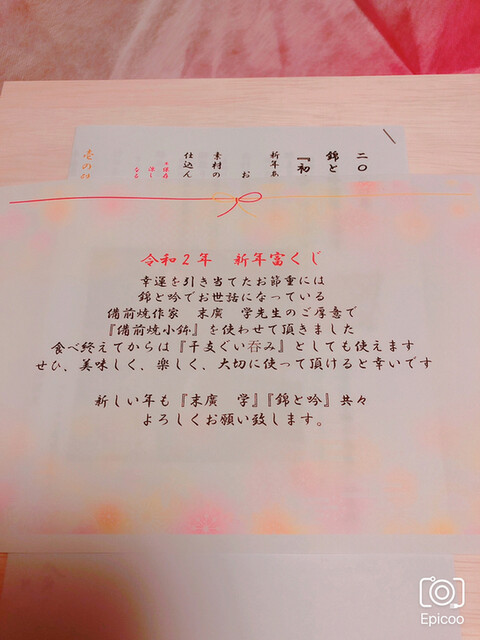 二〇
錦と
『初
新年あ
お
素材の
仕込ん
壱の
令和2年　新年富くじ
幸運を引き当てたお節重には
錦と吟でお世話になっている
備前焼作家　末廣　学先生のご厚意で
『備前焼小鉢』を使わせて頂きました
食べ終えてからは『干支ぐい呑み』としても使えます
ぜひ、美味しく、楽しく、大切に使って頂けると幸いです
新しい年も『末廣　学』『錦と吟』共々
よろしくお願い致します。
Epicoo